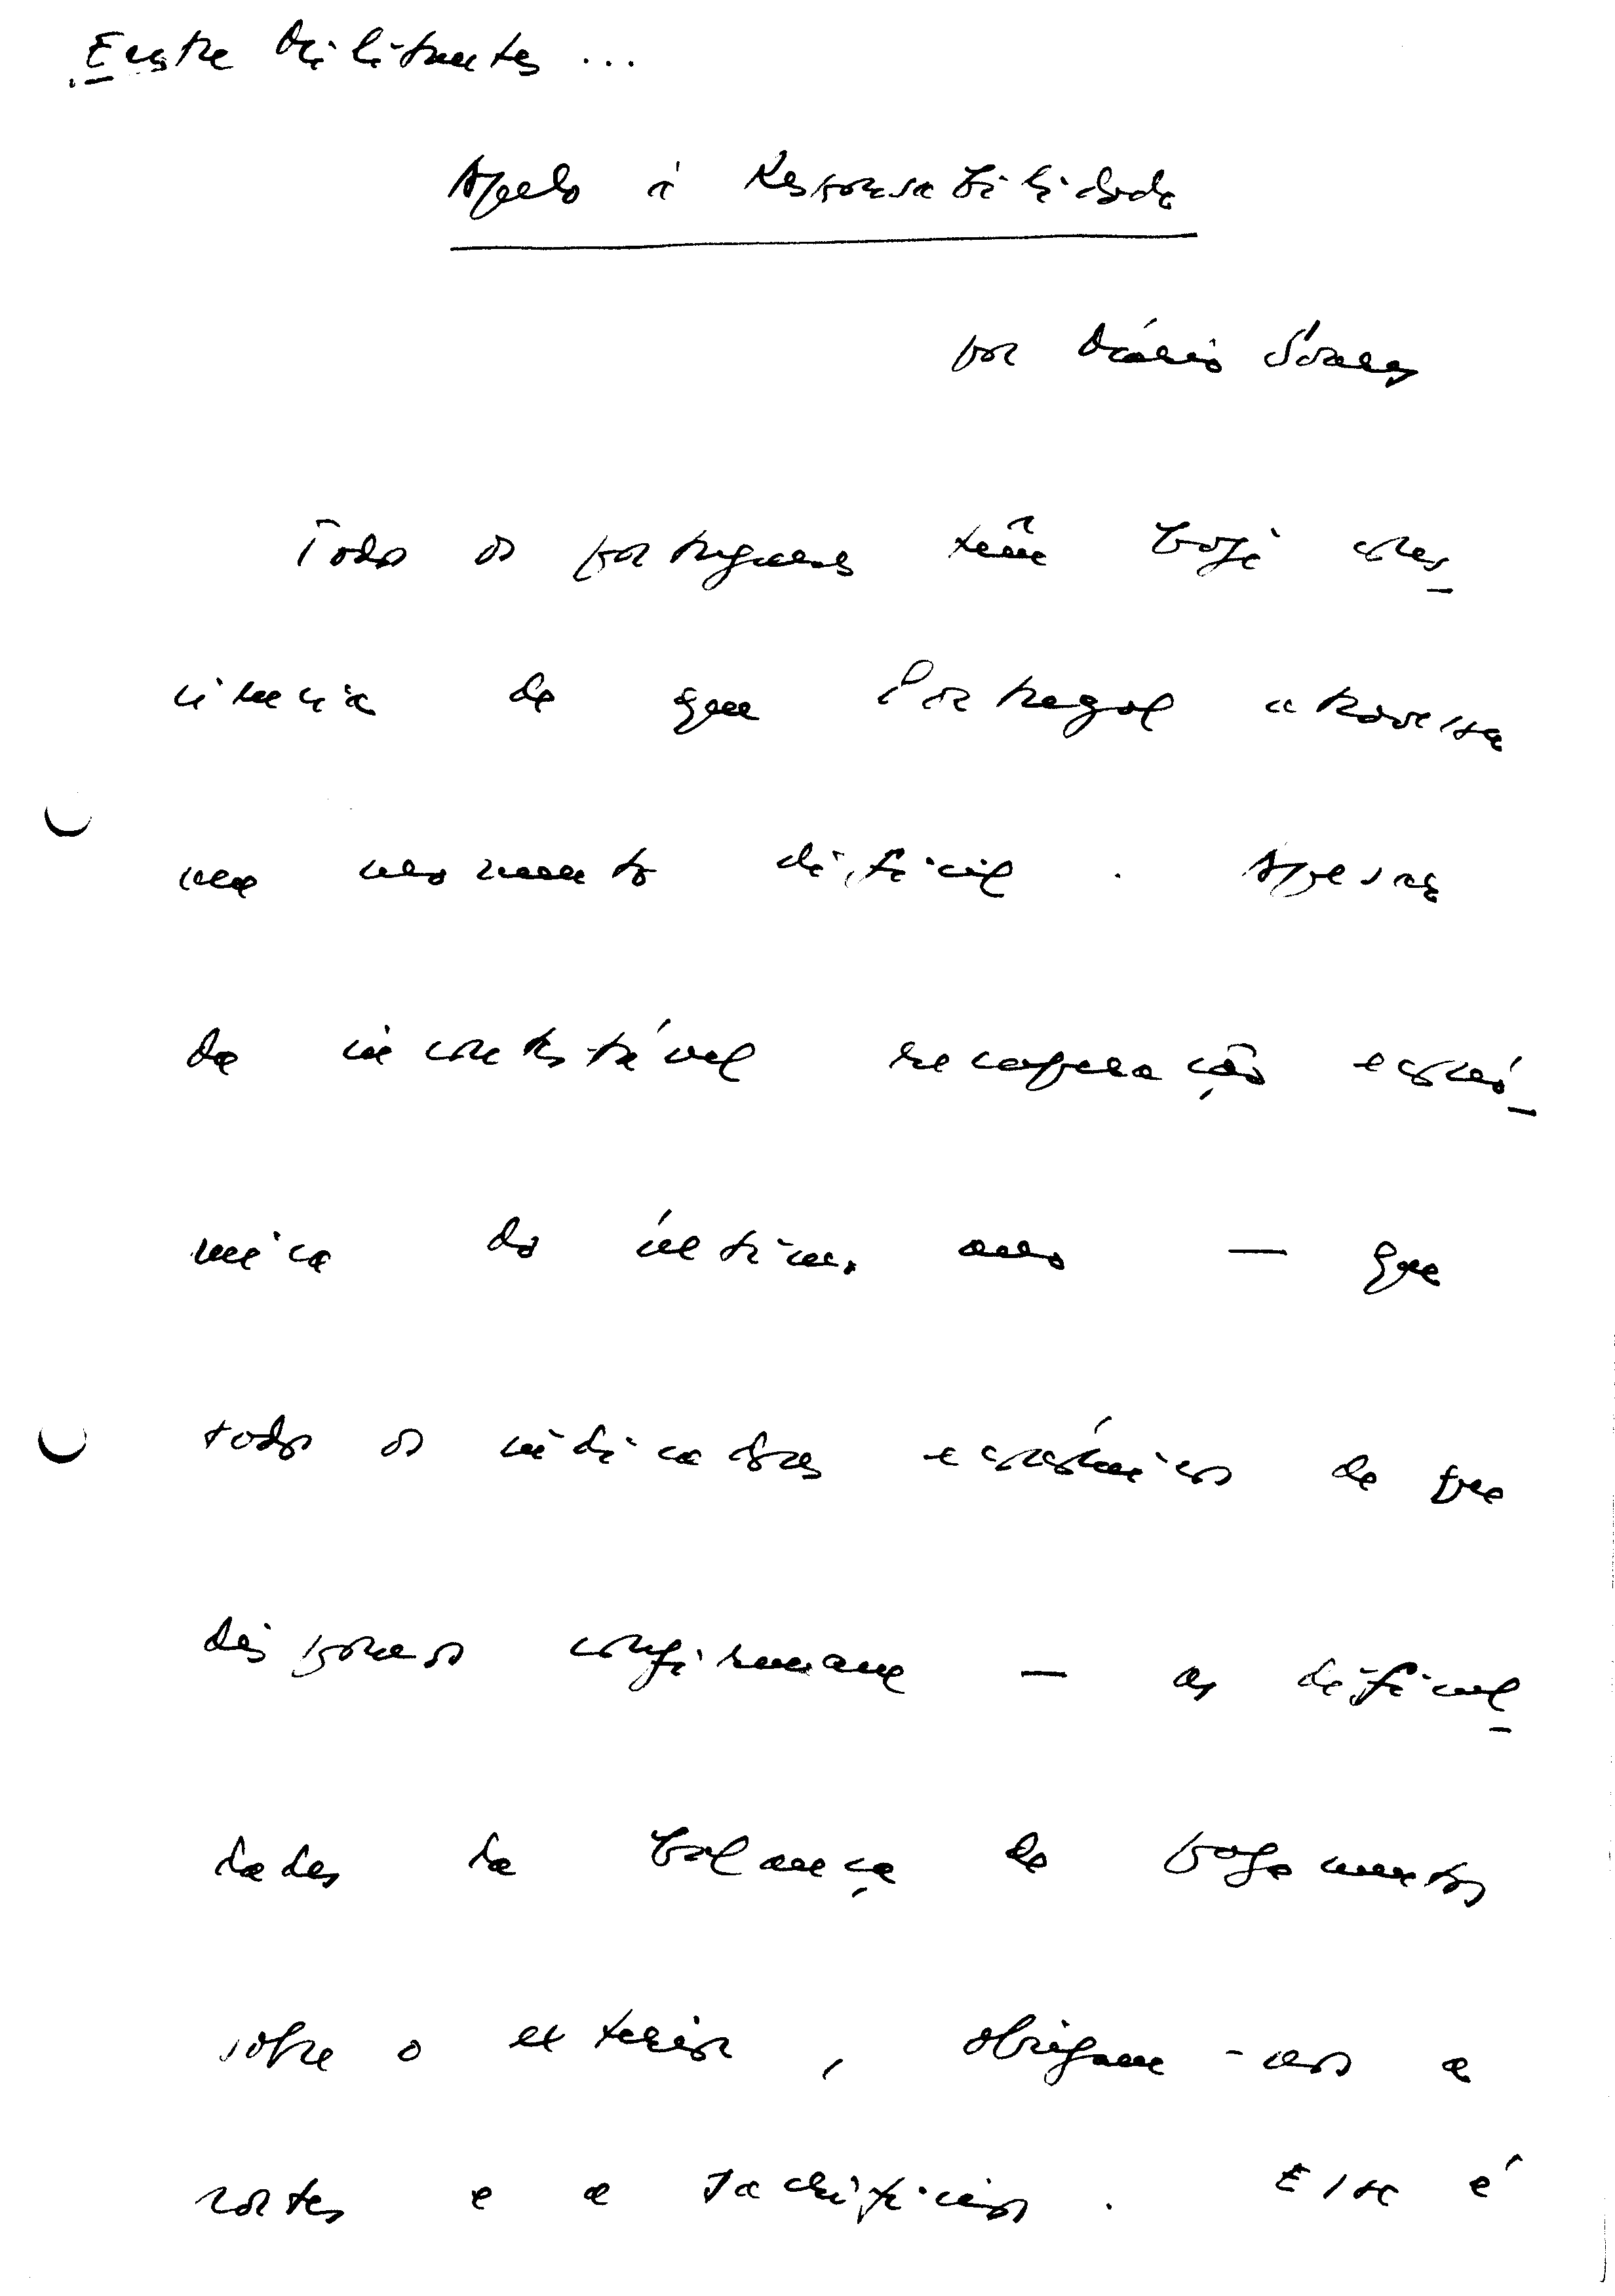 Entre Militantes ...
Apelo à Responsabilidade
por Mário Soares
Todos os portugueses têm hoje cons-
ciência de que Portugal atravessa
um momento difícil. Apesar
da incontestável recuperação econó-
mica do último ano — que
todos os indicadores económicos de que
dispomos confirmam — as dificul-
dades da balança de pagamentos
sobre o exterior, obrigam-nos a
cortes e a sacrifícios. Essa é